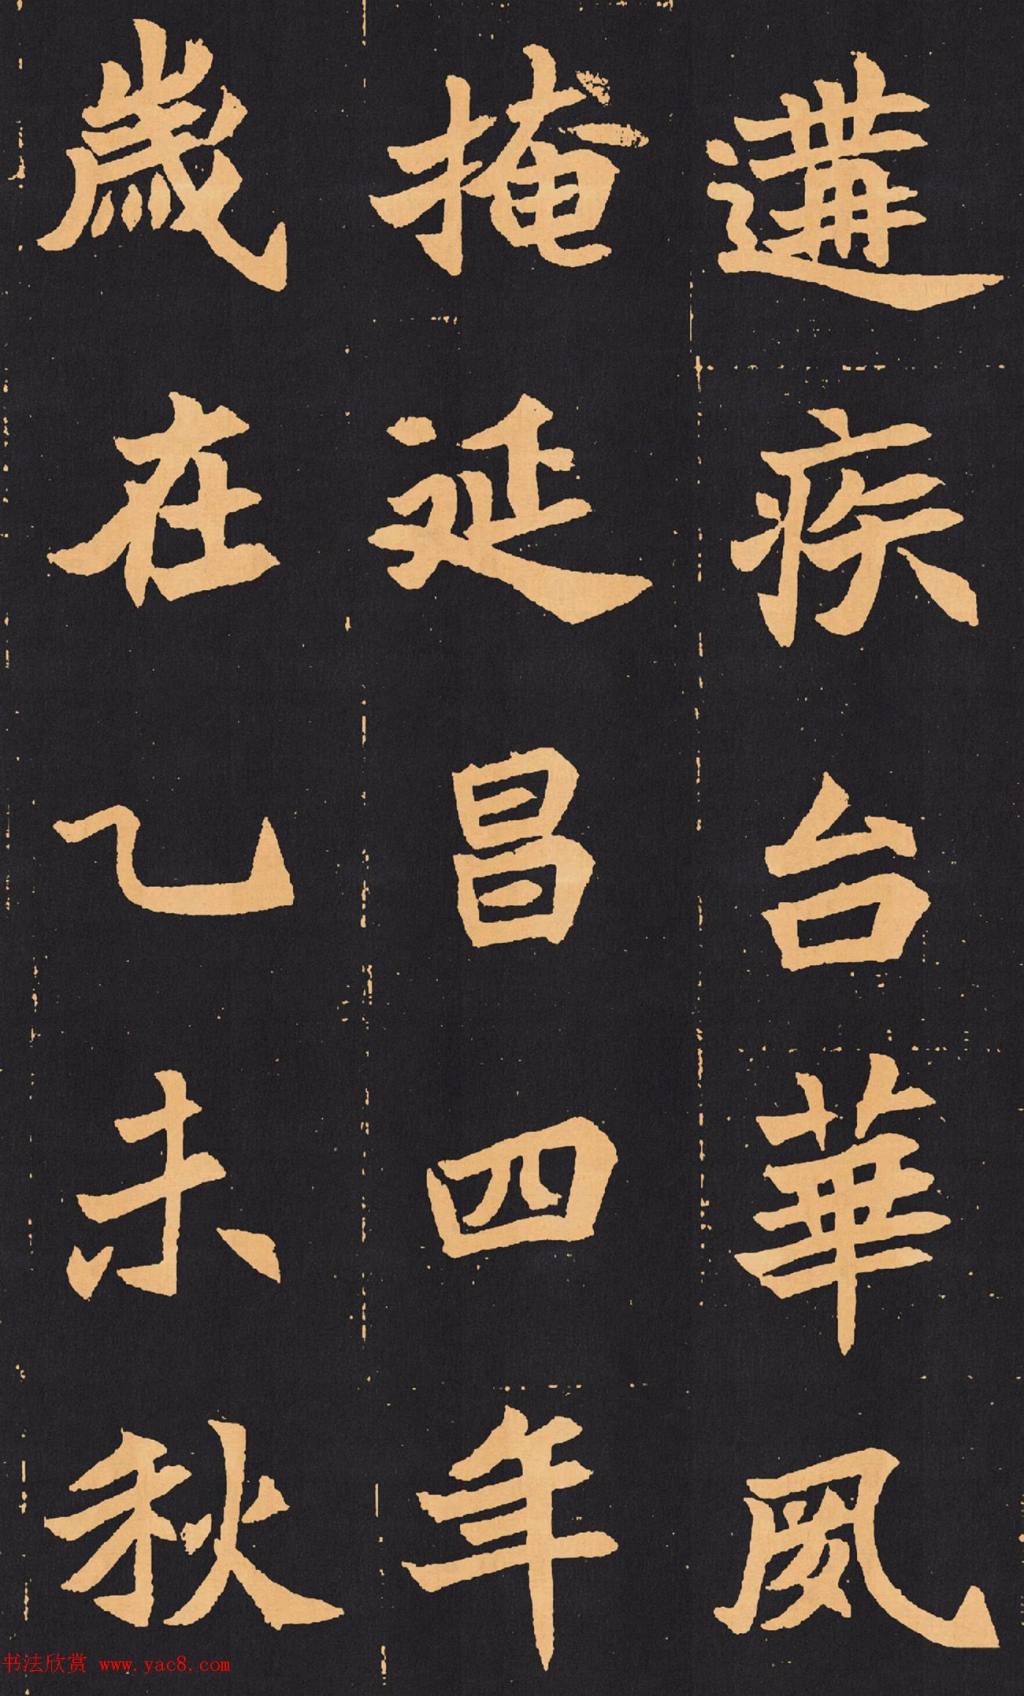 遘疾台華風
掩延昌四年
歲在乙未秋
书法欣赏 www.yac8.com